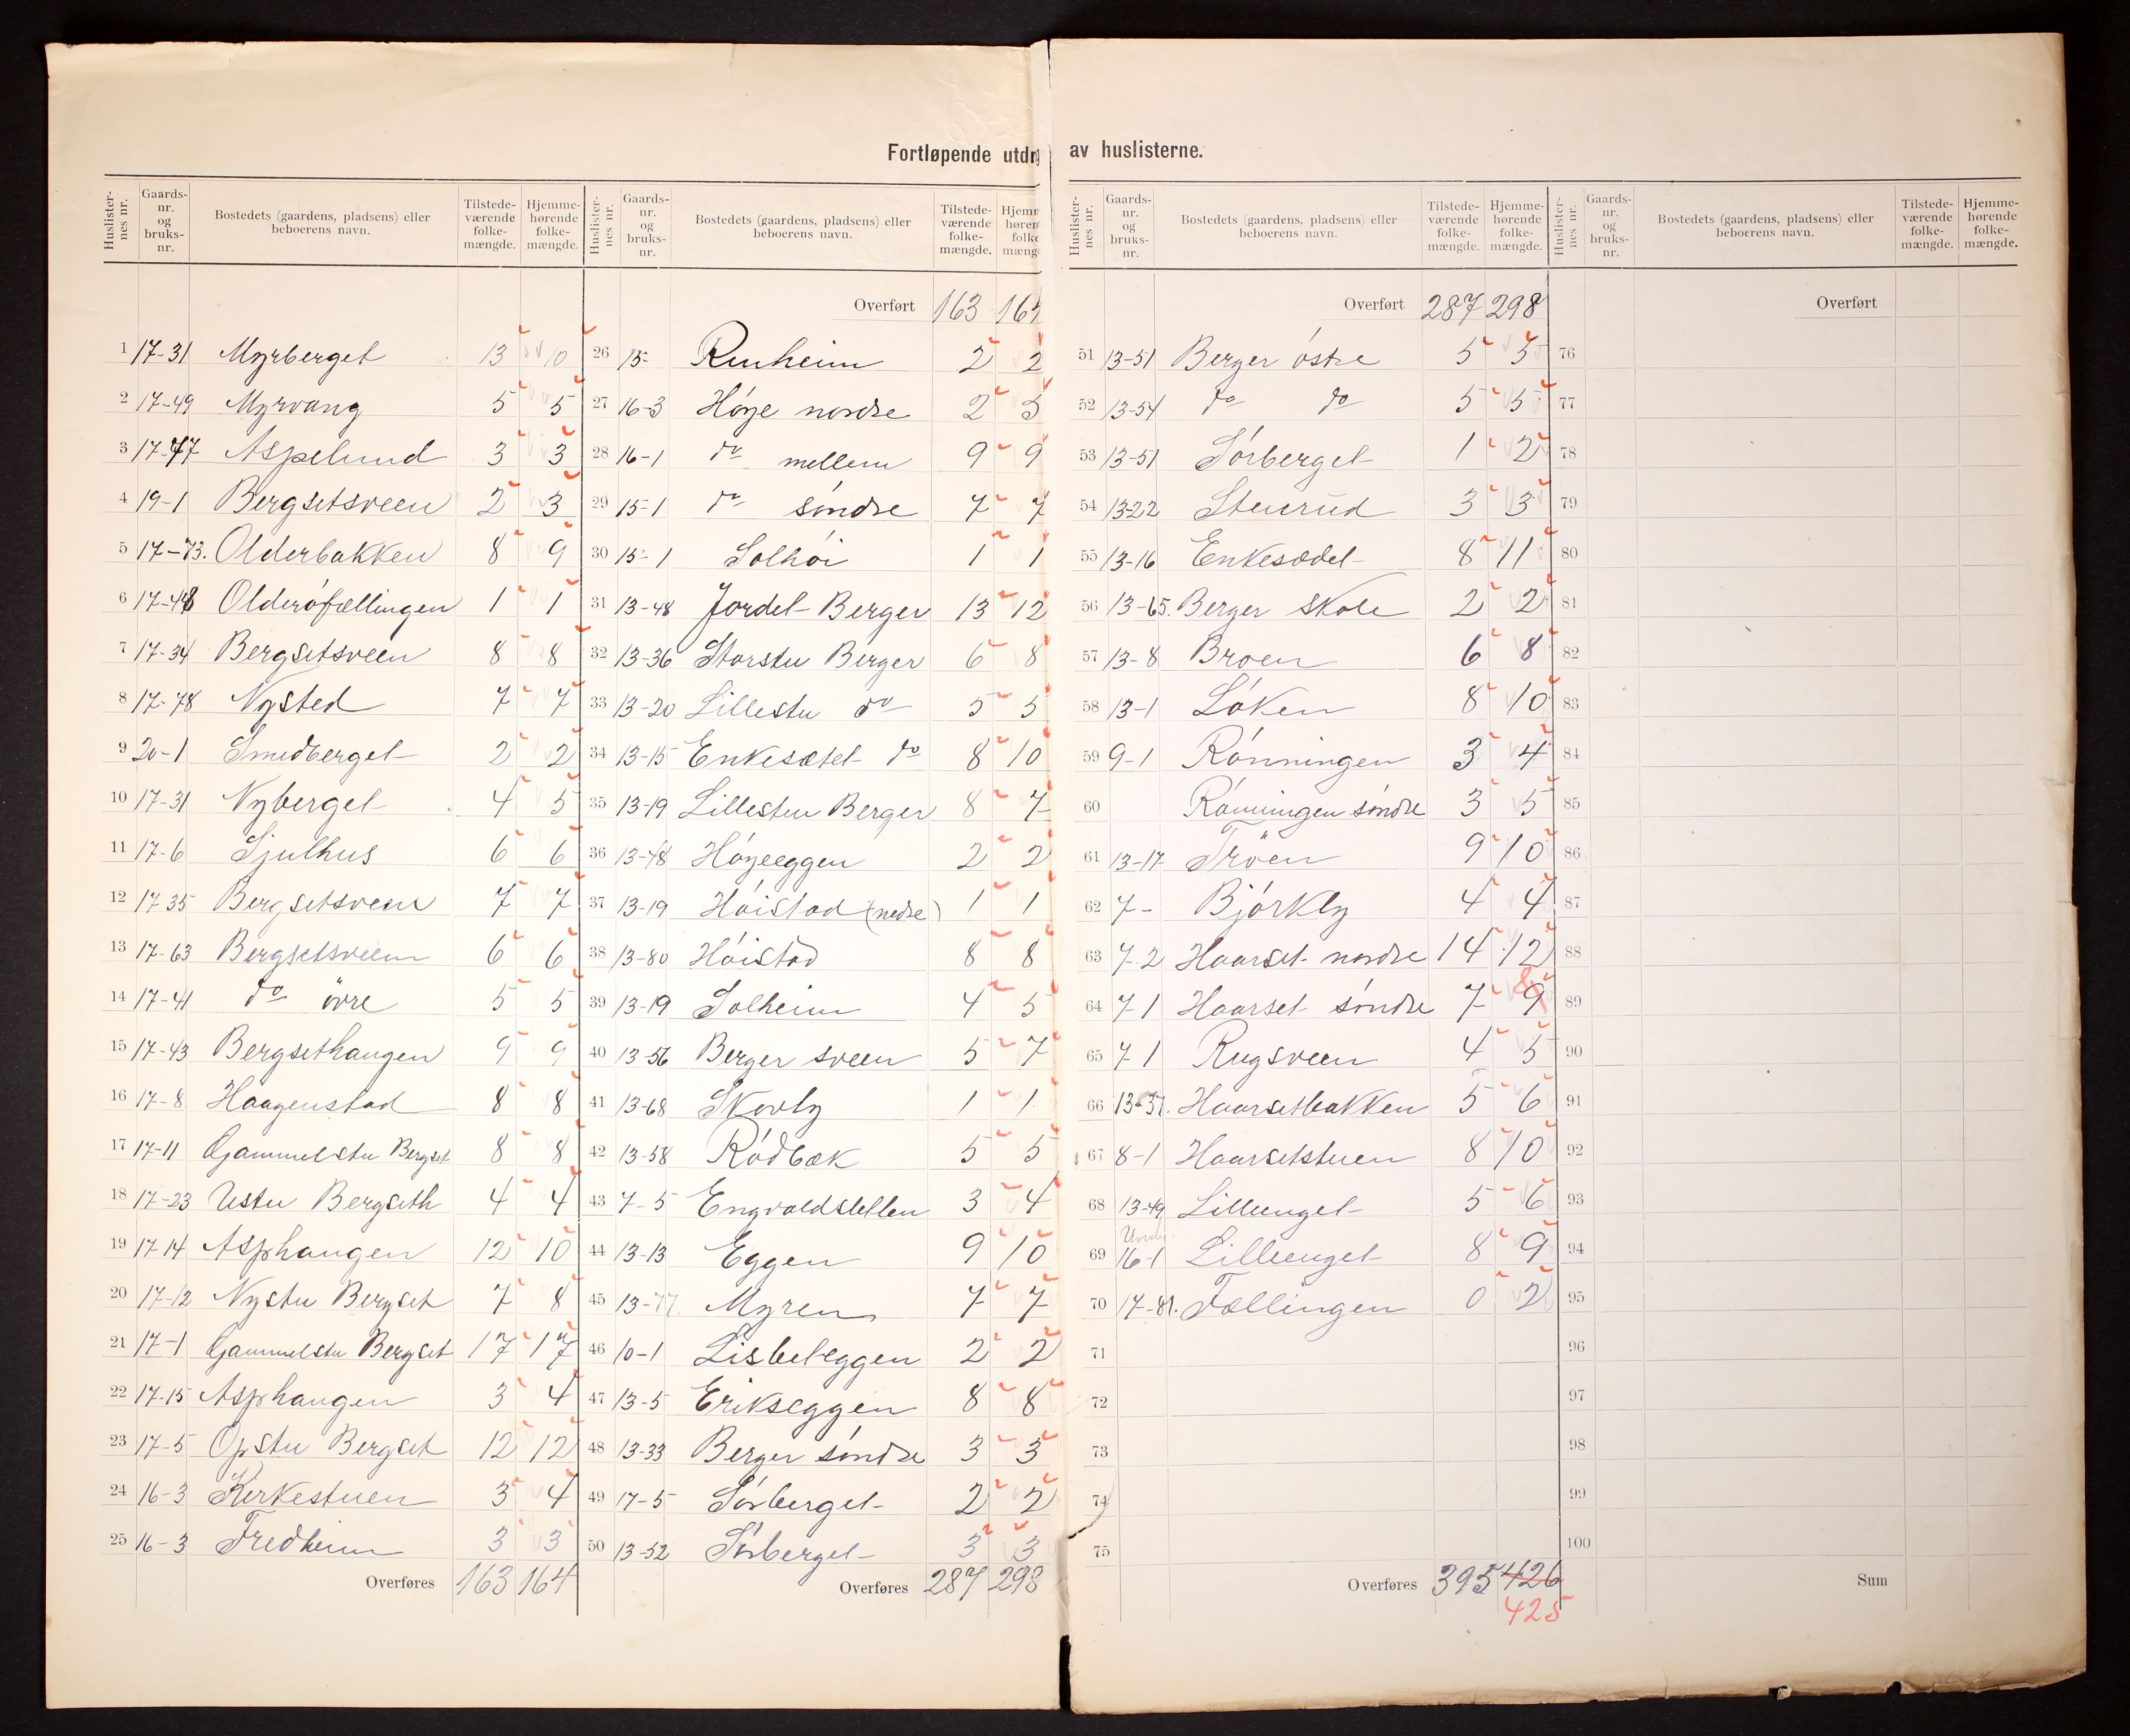 Fortløpende utdr av huslisterne.
Huslister-nes nr. Gaards-nr. og bruks-nr. Bostedets (gaardens, pladsens) eller beboerens navn. Tilstede-værende folke-mængde. Hjemme-hørende folke-mængde.
1 17-31 Myrberget 13 10
2 17-49 Myrvang 5 5
3 17-47 Aspelund 3 3
4 19-1 Bergsetsveen 2 3
5 17-73. Olderbakken 8 9
6 17-48 Olderöfællingen 1 1
7 17-34 Bergsetsveen 8 8
8 17-78 Nysted 7 7
9 20-1 Smedberget 2 2
10 17-31 Nyberget 4 5
11 17-6 Sjulhus 6 6
12 17-35 Bergsetsveen 7 7
13 17-63 Bergsetsveen 6 6
14 17-41 do övre 5 5
15 17-43 Bergsethaugen 9 9
16 17-8 Haagenstad 8 8
17 17-11 Gammelstu Bergset 8 8
18 17-23 Ustu Bergseth 4 4
19 17-14 Asphaugen 12 10
20 17-12 Nystu Bergset 7 8
21 17-1 Gammelstu Bergset 17 17
22 17-15 Asphaugen 3 4
23 17-5 Opstu Bergset 12 12
24 16-3 Kirkestuen 3 4
25 16-3 Fredheim 3 3
Overføres 163 164
Huslister-nes nr. Gaards-nr. og bruks-nr. Bostedets (gaardens, pladsens) eller beboerens navn. Tilstede-værende folke-mængde.
Overført 163 164
26 15- Renheim 2 2
27 16-3 Høye nordre 2 3
28 16-1 do mellem 9 9
29 15-1 do söndre 7 7
30 15-1 Solhöi 1 1
31 13-48 Jordet Berger 13 12
32 13-36 Storstu Berger 6 8
33 13-20 Lillestu do 5 5
34 13-15 Enkesætet do 8 10
35 13-19 Lillestuu Berger 8 7
36 13-48 Høyeeggen 2 2
37 13-19 Höistad (nedre) 1 1
38 13-80 Höistad 8 8
39 13-19 Solheim 4 5
40 13-56 Berger sveen 5 7
41 13-68 Skovly 1 1
42 13-58 Rödbæk 5 5
43 7-5 Engvoldsletten 3 4
44 13-13 Eggen 9 10
45 13-77. Myren 7 7
46 10-1 Lisbeteggen 2 2
47 13-5 Erikseggen 8 8
48 13-33 Berger söndre 3 3
49 17-5 Sörberget 2 2
50 13-52 Sörberget 3 3
Overføres 287 298
Huslister-nes nr. Gaards-nr. og bruks-nr. Bostedets (gaardens, pladsens) eller beboerens navn. Tilstede-værende folke-mængde. Hjemme-hørende folke-mængde.
Overført 287 298
51 13-51 Berger östre 5 5
52 13-54 do do 5 5
53 13-51 Sörberget 1 2
54 13-22 Stenrud 3 3
55 13-16 Enkesædet 8 11
56 13-65. Berger skole 2 2
57 13-8 Broen 6 8
58 13-1 Löken 8 10
59 9-1 Rönningen 3 4
60 Rönningen söndre 3 5
61 13-17 Tröen 9 10
62 7- Björkly 4 4
63 7-2 Haarset nordre 14 12
64 7 1 Haarset söndre 7 9 8
65 7 1 Rugsveen 4 5
66 13-31. Haarsetbakken 5 6
67 8-1 Haarsetstuen 8 10
68 13-49 Lilleenget 5 6
69 16-1 Lilleenget 8 9
70 17-81. Fællingen 0 2
71
72
73
74
75
Overføres 395 426
425
Huslister-nes nr. Gaards-nr. og bruks-nr. Bostedets (gaardens, pladsens) eller beboerens navn. Tilstede-værende folke-mængde. Hjemme-hørende folke-mængde.
Overført
76
77
78
79
80
81
82
83
84
85
86
87
88
89
90
91
92
93
94
95
96
97
98
99
100
Sum